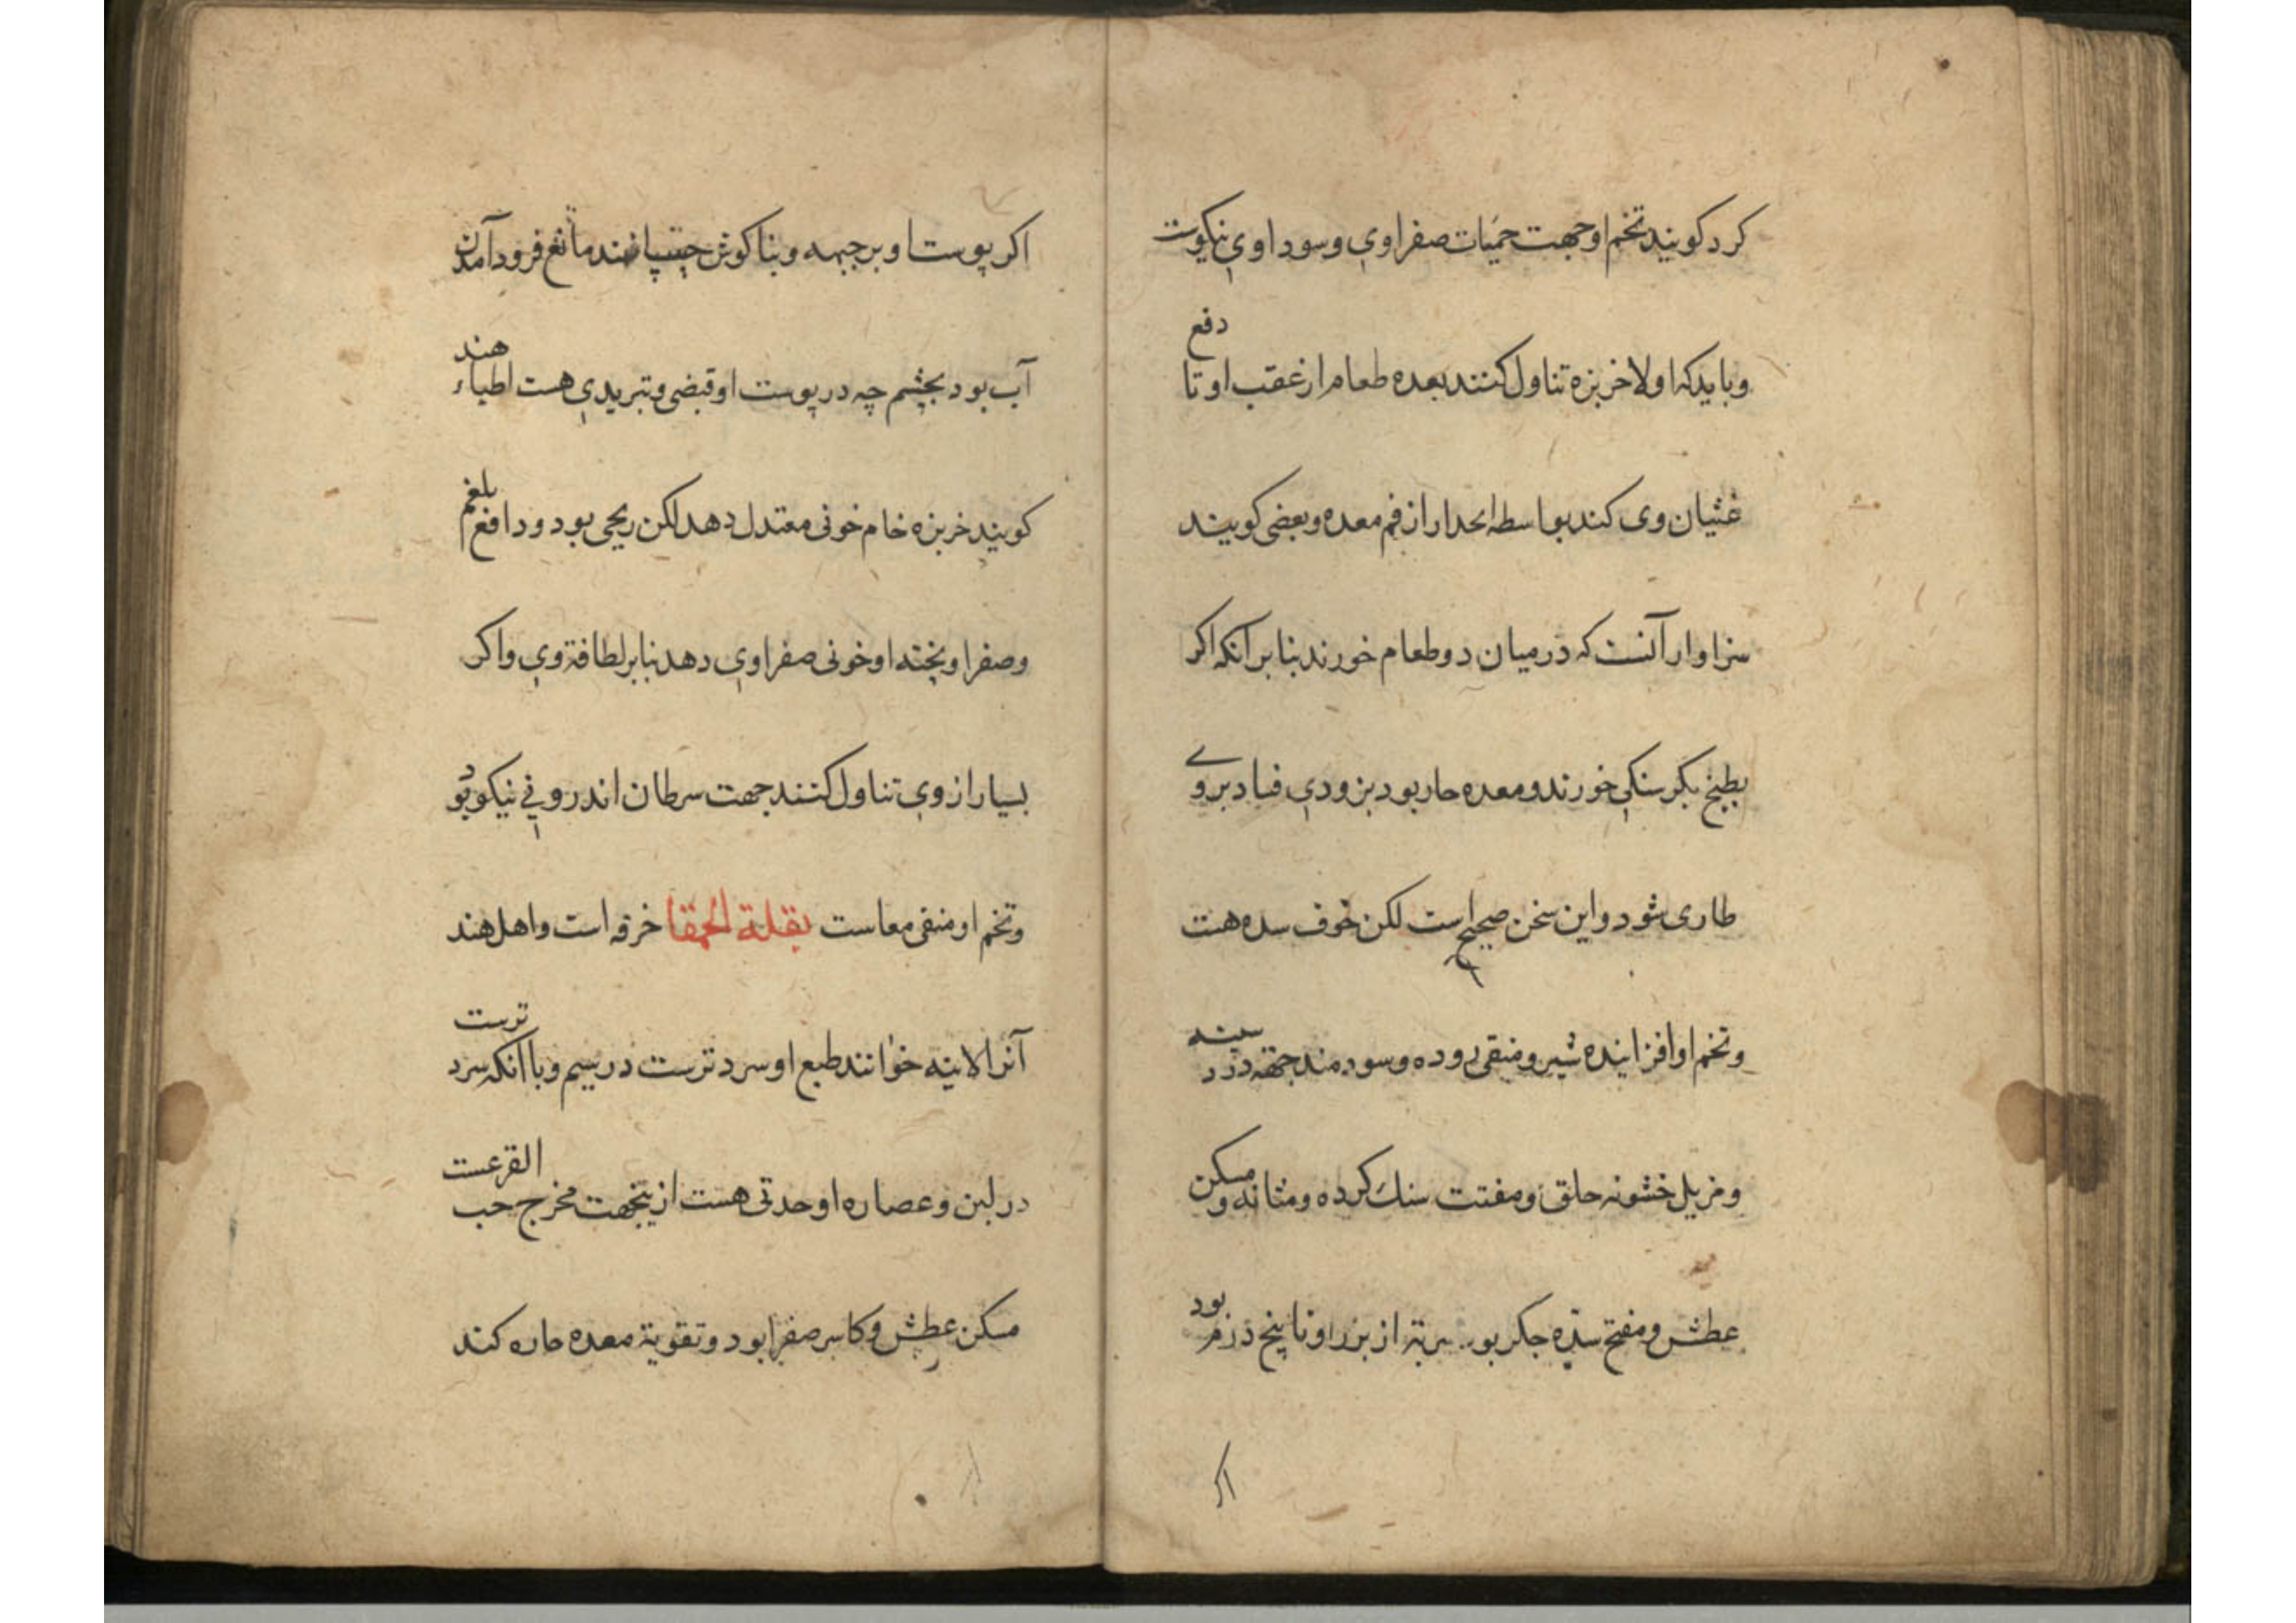 کرد کویند تخم او جهت حمیات صفراوی وسوداوی نیکوت
وباید که اولا خربزه تناول کنند بعده طعام از عقب او تا دفع
غثیان وی کند بواسطه انحدار از فم معده وبعضی کویند
سزاوار آنست که در میان دو طعام خورند بنابر آنکه اکر
بطیخ بکرسنکی خورند ومعده حار بود بزودی فساد بروے
طاری شود واین سخن صحیح است لکن خوف سده هست
وتخم او افزاینده شیر ومنقی روده وسودمند جهة درد سینه
ومزیل خشونه حلق ومفتت سنك کرده ومثانه ومسکن
عطش ومفتح سدّه جکر بود شربة از بزر او تا پنج درم بود
اکر
اکر پوست او بر جبهه وبناکوش چسپانند مانع فرود آمدن
آب بود بچشم چه در پوست او قبضی وتبریدی هست اطباء هند
کویند خربزه خام خونی معتدل دهد لکن ریحی بود ودافع بلغم
وصفرا وپخته او خونی صفراوی دهد بنابر لطافة وی واکر
بسیار از وی تناول کنند جهت سرطان اندرونی نیکو بود
وتخم او منقی معاست بقلة الحمقا خرفه است واهل هند
آنرا لاینه خوانند طبع او سرد ترست در سیم وبا آنکه سرد ترست
در لبن وعصاره او حدتی هست ازینجهت مخرج حب القرعست
مسکن عطش وکاسر صفرا بود وتقویة معده حاره کند